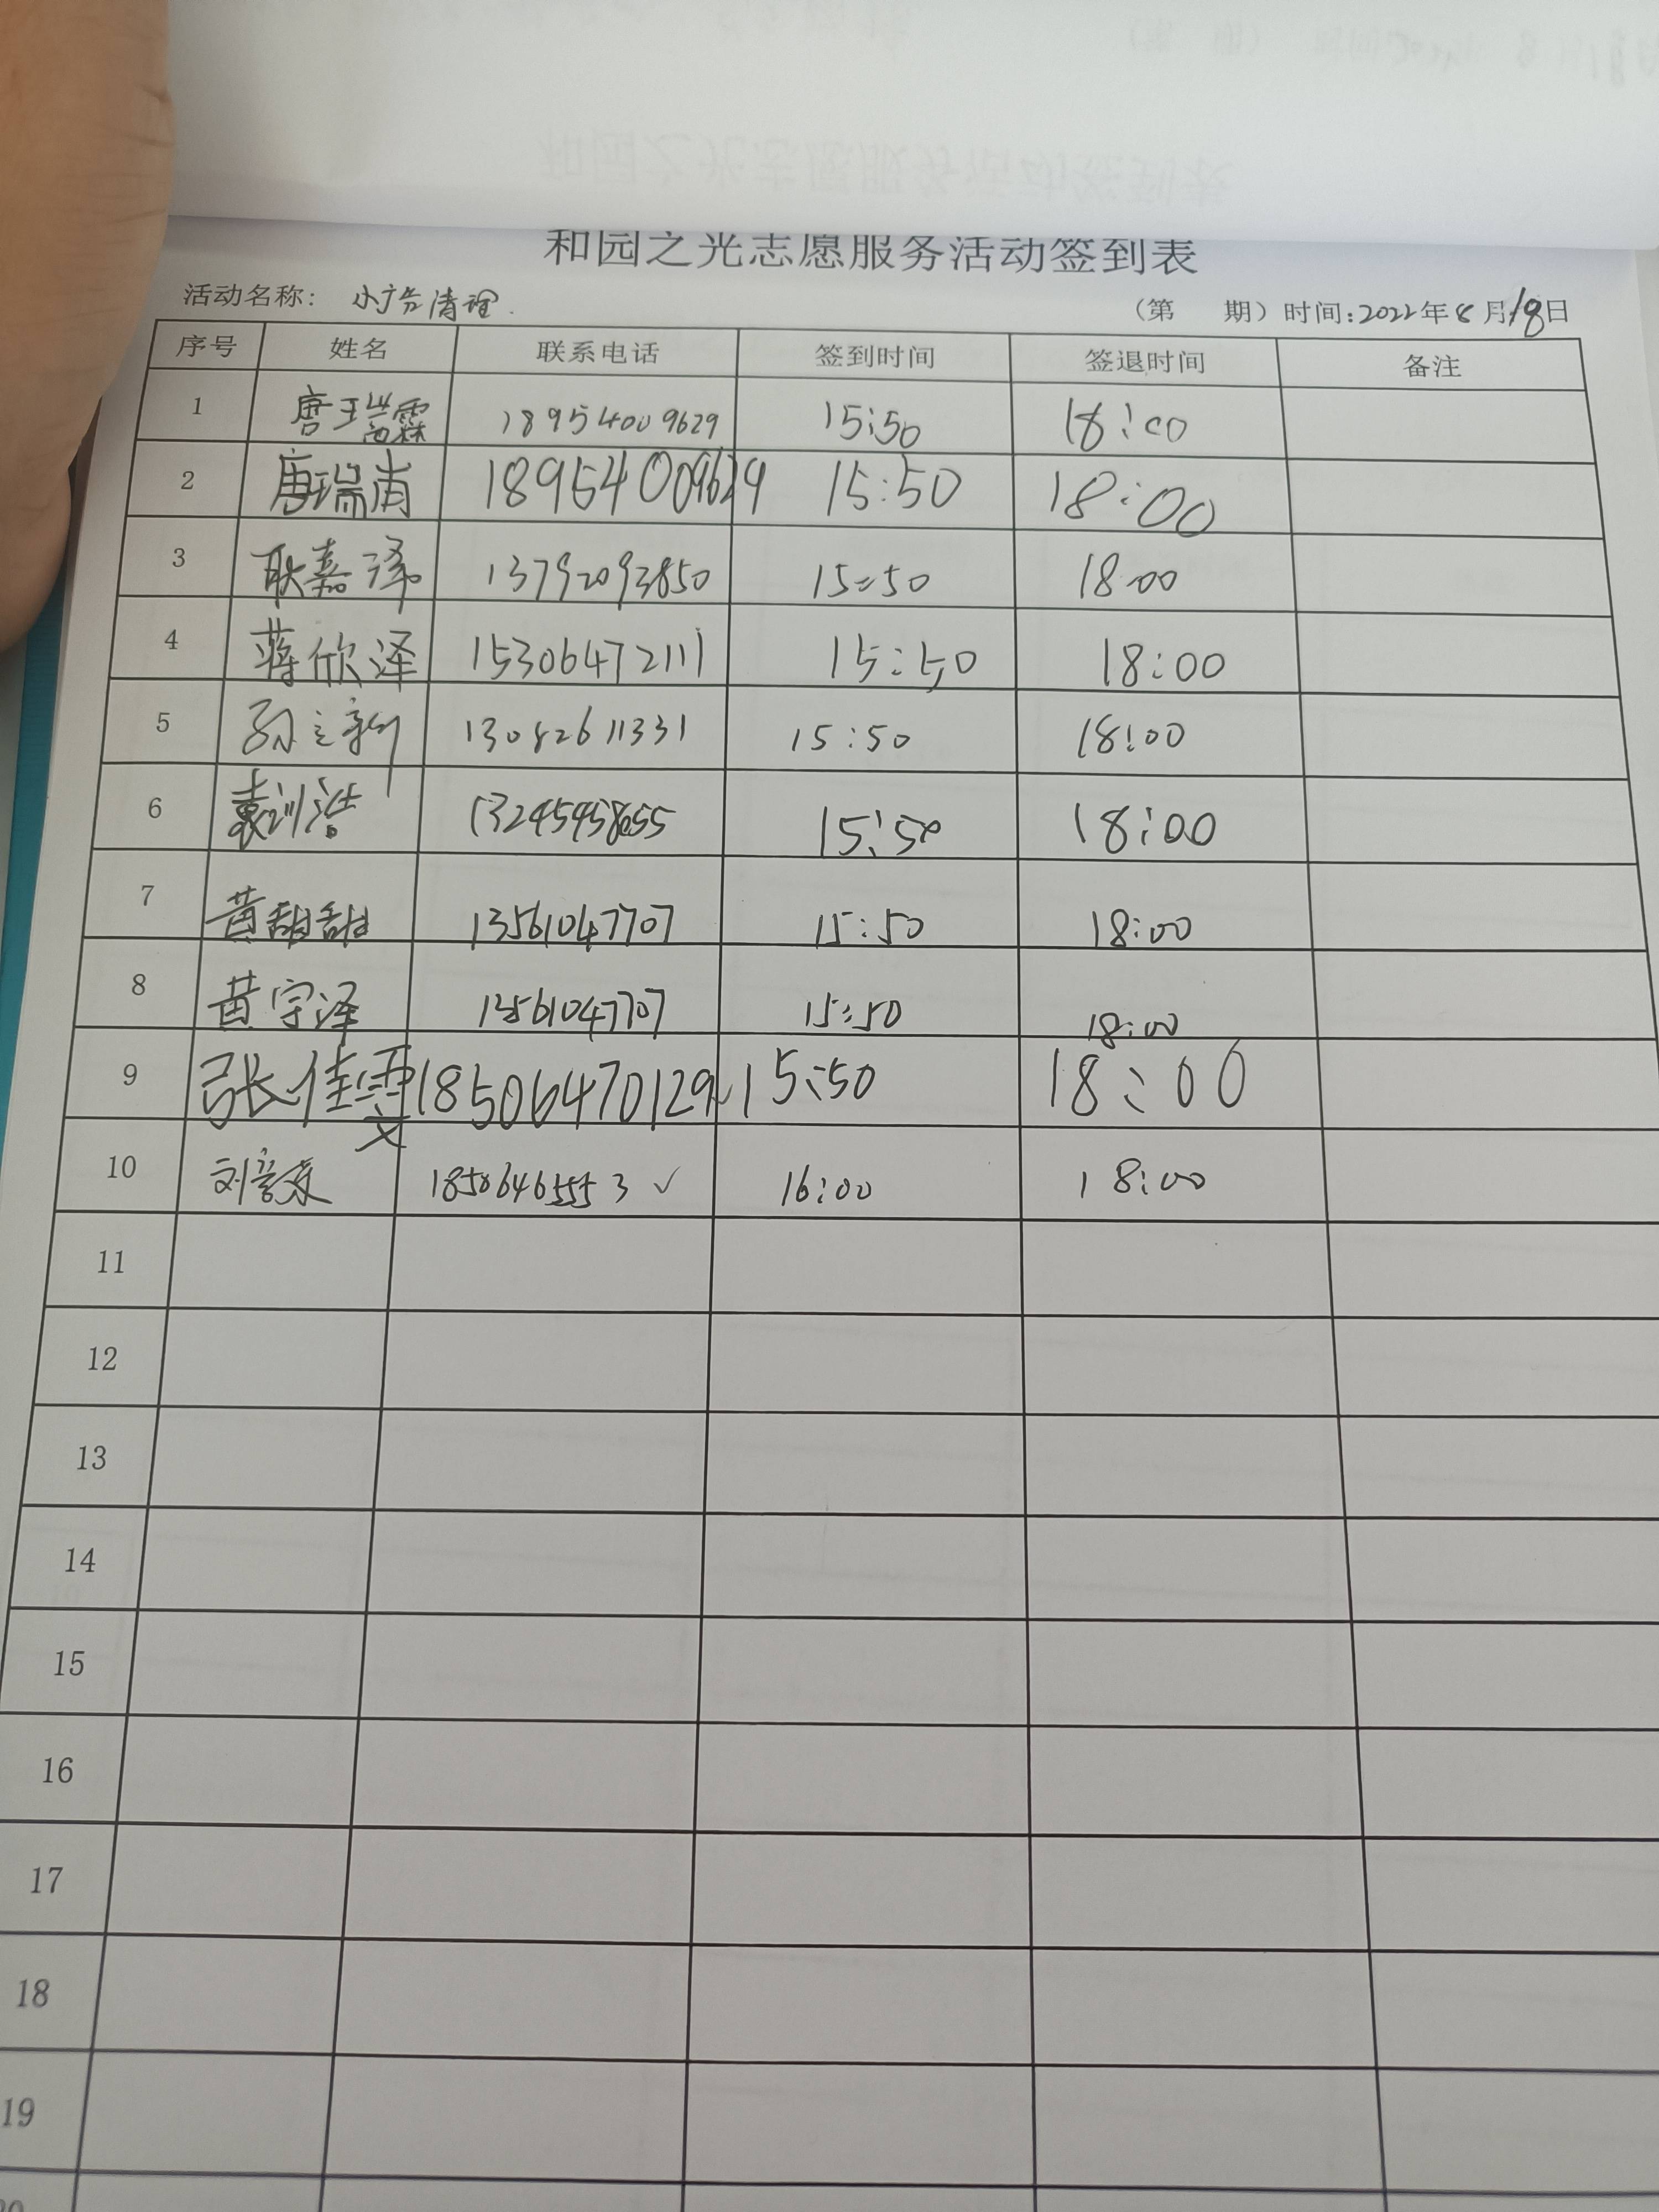 和园之光志愿服务活动签到表
活动名称: 小广告清理. (第 期) 时间:2022年8月18日
序号 姓名 联系电话 签到时间 签退时间 备注
1 唐瑞霖 18954009629 15:50 18:00
2 唐瑞甫 18954009629 15:50 18:00
3 耿嘉泽 13792093850 15:50 18:00
4 蒋欣泽 15306472111 15:50 18:00
5 孙立新 13082611331 15:50 18:00
6 袁训浩 15:50 18:00
7 黄甜甜 13561047707 15:50 18:00
8 黄宇泽 13561047707 15:50 18:00
9 张佳雯 18506470129 15:50 18:00
10 刘 18506465553 ✓ 16:00 18:00
11
12
13
14
15
16
17
18
19